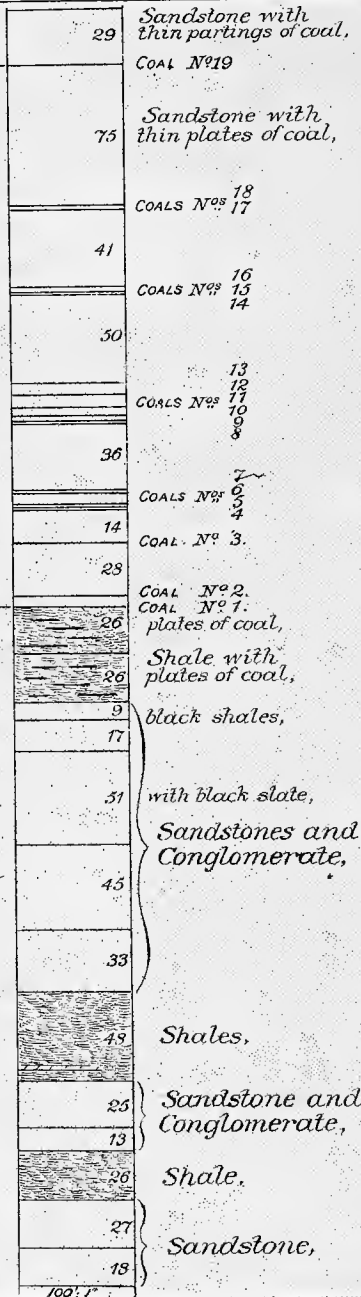 Sandstone with
29 thin partings of coal,
COAL Nº19
Sandstone with
75 thin plates of coal,
18
COALS Nºs 17
41
16
COALS Nºs 15
14
50
13
12
COALS Nºs 11
10
9
8
36
7
COALS Nºs 6
5
4
14
COAL Nº 3.
28
COAL Nº 2.
COAL Nº 1.
26 plates of coal,
Shale with
26 plates of coal,
9 black shales,
17
51 with black slate,
Sandstones and
Conglomerate,
45
33
48 Shales,
25 Sandstone and
Conglomerate,
13
26 Shale,
27
Sandstone,
18